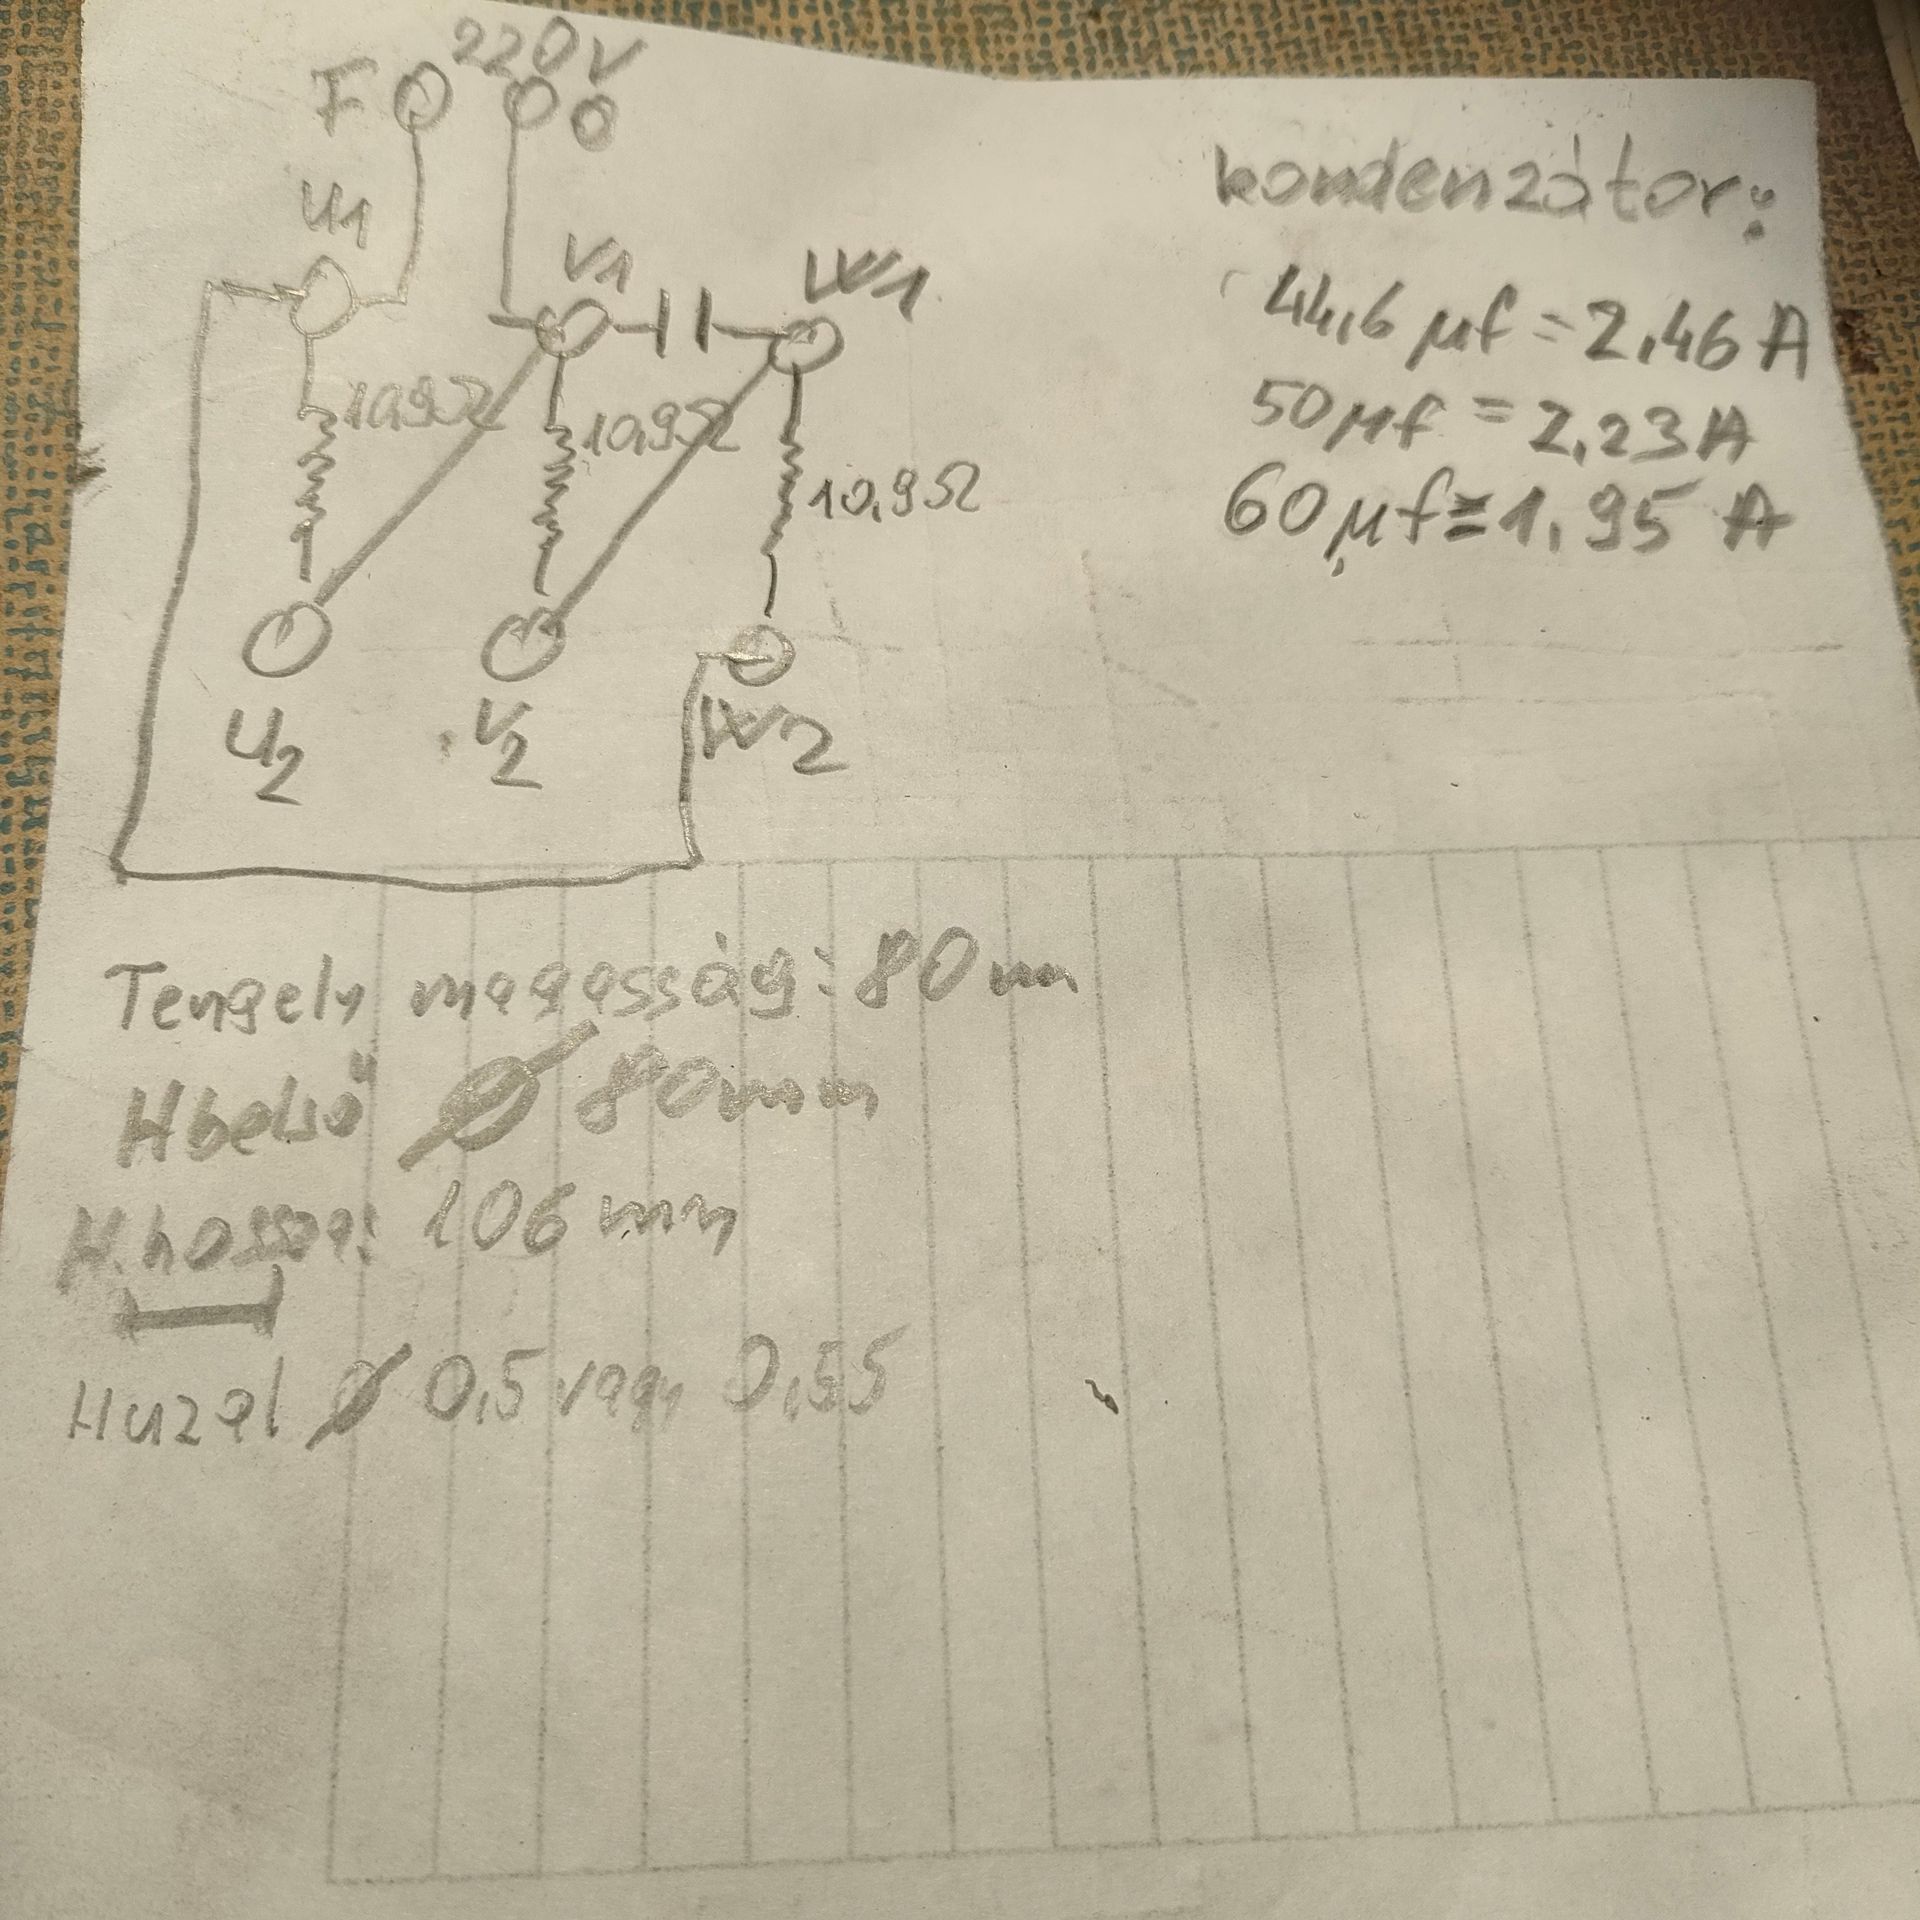 220V
F O O O
U1
V1
W1
10,9Ω
10,9Ω
10,9Ω
U2
V2
W2
kondenzátor:
44,6 µf = 2,46 A
50 µf = 2,23 A
60 µf = 1,95 A
Tengely magasság: 80 mm
H belső Ø 80mm
H. hossza: 106 mm
Huzal Ø 0,5 vagy 0,55